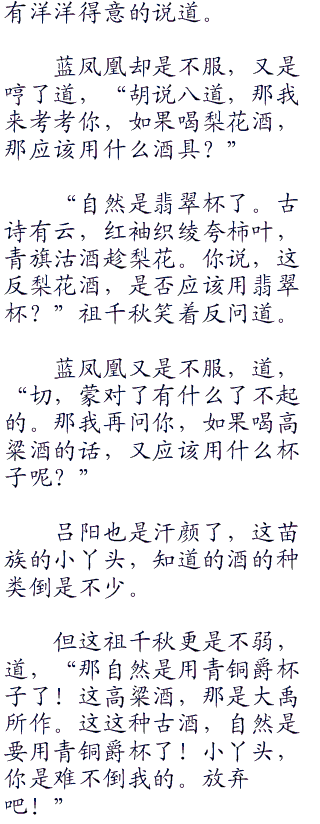 有洋洋得意的说道。
蓝凤凰却是不服，又是
哼了道，“胡说八道，那我
来考考你，如果喝梨花酒，
那应该用什么酒具？”
“自然是翡翠杯了。古
诗有云，红袖织绫夸柿叶，
青旗沽酒趁梨花。你说，这
反梨花酒，是否应该用翡翠
杯？”祖千秋笑着反问道。
蓝凤凰又是不服，道，
“切，蒙对了有什么了不起
的。那我再问你，如果喝高
粱酒的话，又应该用什么杯
子呢？”
吕阳也是汗颜了，这苗
族的小丫头，知道的酒的种
类倒是不少。
但这祖千秋更是不弱，
道，“那自然是用青铜爵杯
子了！这高粱酒，那是大禹
所作。这这种古酒，自然是
要用青铜爵杯了！小丫头，
你是难不倒我的。放弃
吧！”